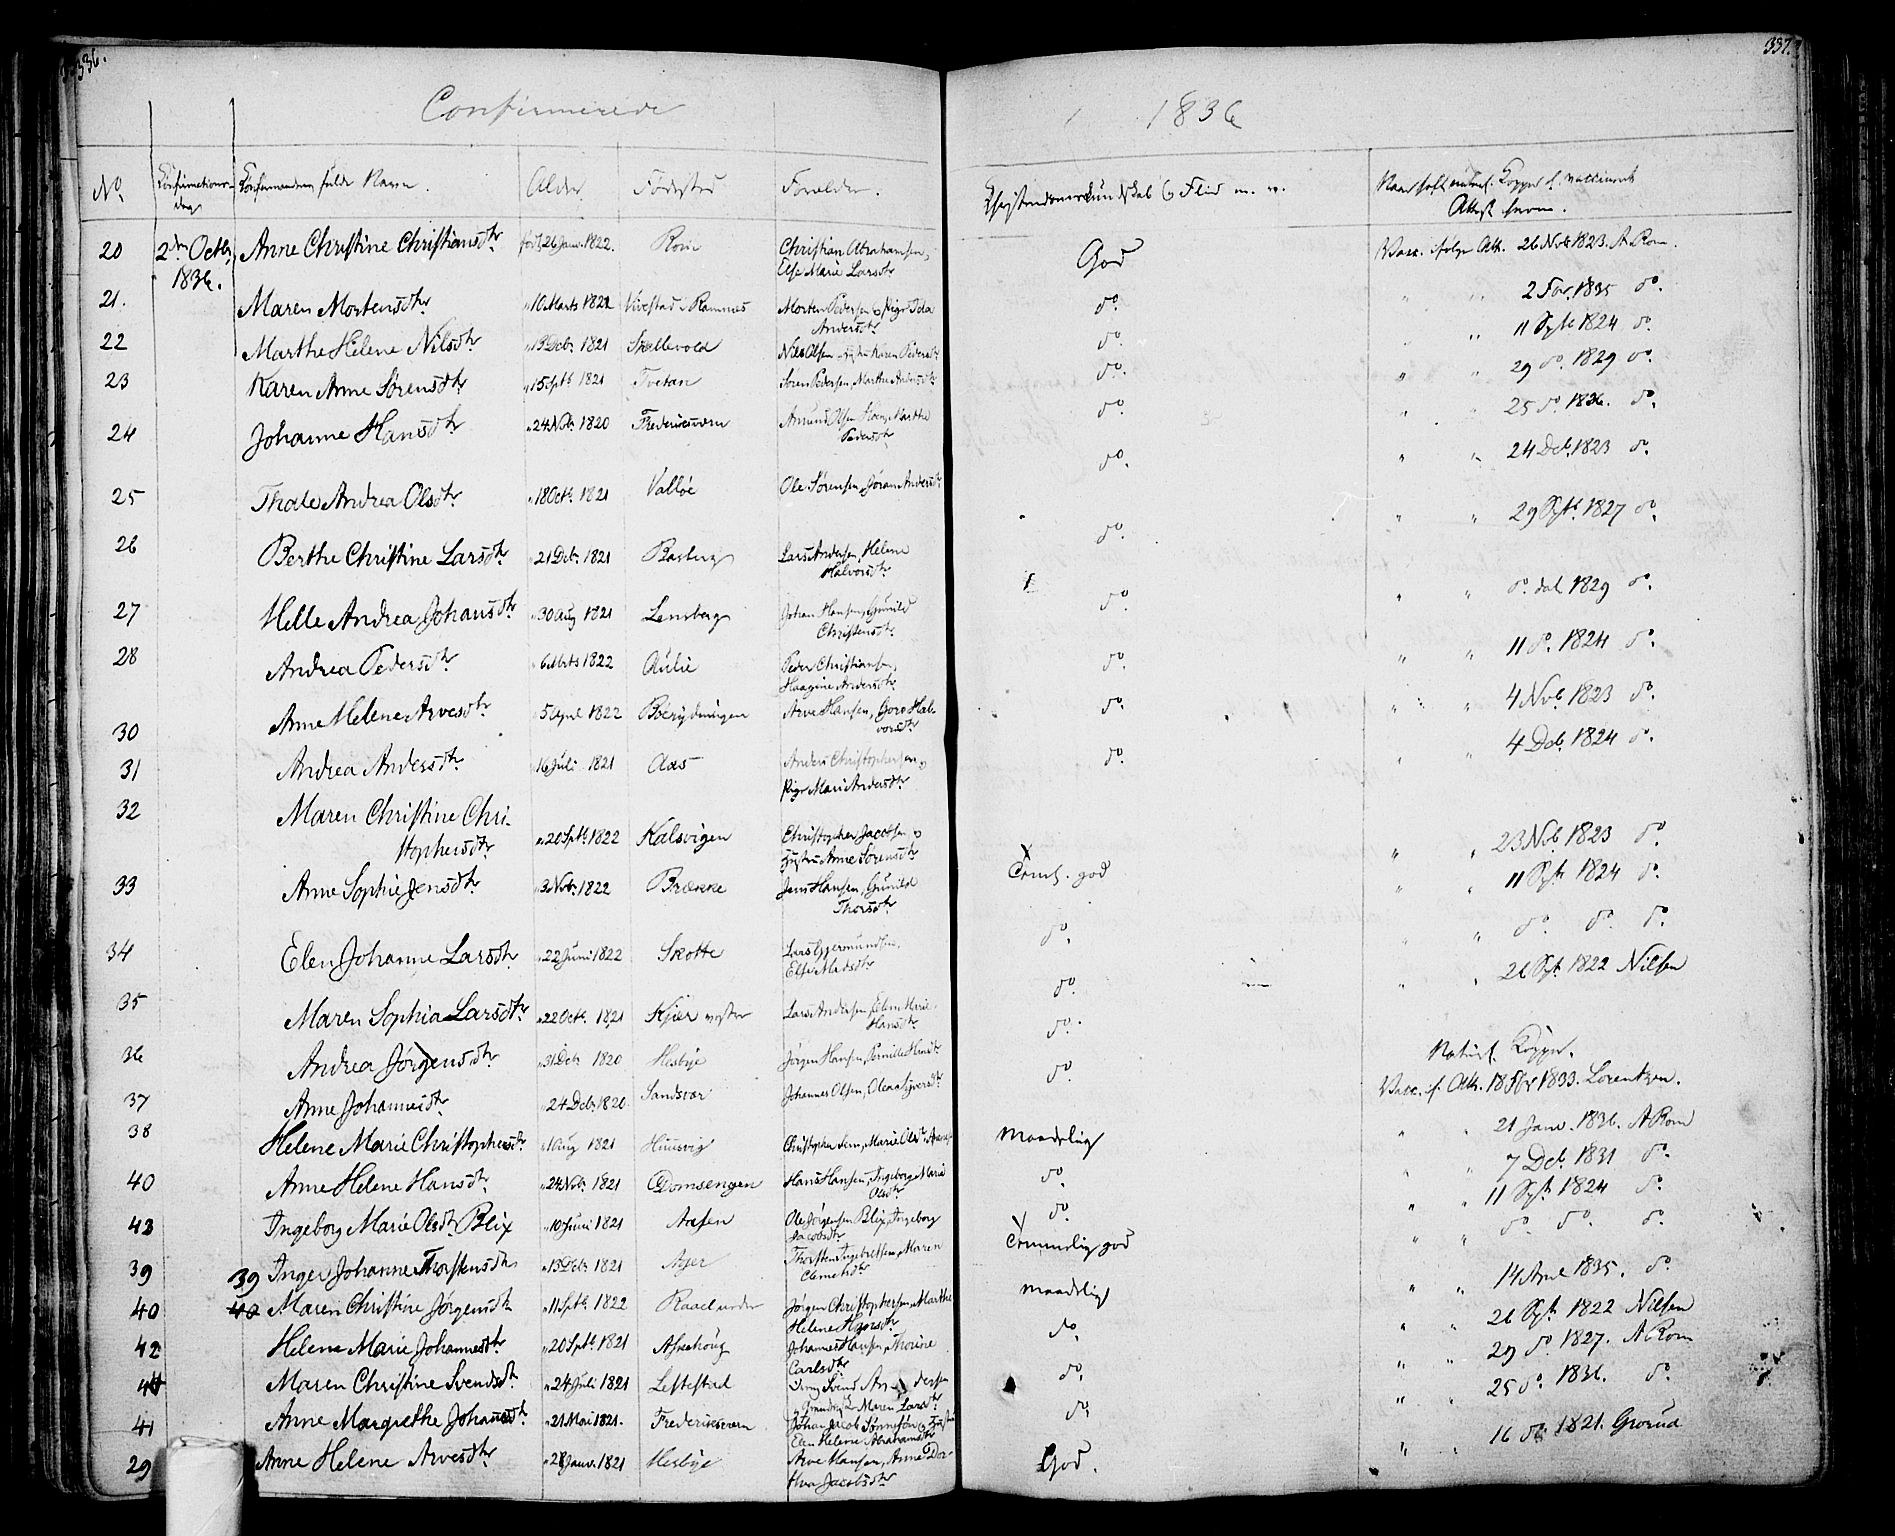 336.
Confirmerede
No. Confirmations- dag Confirmandens fulde Navn. Alder Fødested Forældre.
20 2den Octbr 1836. Anne Christine Christiansdtr født 26 Janv. 1822. Rom Christian Abrahamsen,
Else Marie Larsdtr
21. Maren Mortensdtr " 10 Marts 1822 Vivestad i Ramnes Morten Pedersen og Pige Ida
Andersdtr
22 Marthe Helene Nilsdtr " 13 Decbr 1821 Skallevold Nils Olsen Karen Pedersdtr
23 Karen Anne Sørensdtr " 15 Sptb. 1821 Tvetan Søren Pedersen, Marthe Andersdtr
24 Johanne Hansdtr " 24 Nvb. 1820 Frederiksværn Marthe
Pedersdtr
25 Thale Andrea Olsdtr " 18 Octb. 1821 Valløe Ole Sørensen, Jøran Andersdtr
26 Berthe Christine Larsdtr " 21 Decb. 1821 Basberg Lars Andersen, Helene
Halvorsdtr
27 Helle Andrea Johansdtr " 30 Aug 1821 Lensberg Johan Hansen, Gunild
Christensdtr
28 Andrea Pedersdtr " 6 Marts 1822 Aulie Peder Christiansen,
Haagine Andersdtr
30 Anne Helene Arvesdtr " 5 April 1822 Bøerydningen Arve Hansen, Goro Hal-
vorsdtr
31 Andrea Andersdtr " 16 Juli 1821 Aas Anders Christophersen o
Pige Mari Andersdtr
32 Maren Christine Chri-
stophersdtr " 20 Sptb. 1822 Kalsvigen Christopher Jacobsen o
Hustru Anne Sørensdtr
33 Anne Sophie Jensdtr " 3 Nvb. 1822 Brække Jens Hansen, Gunild
Thorsdtr
34 Elen Johanne Larsdtr " 22 Juni 1822 Skotte Lars
Else Madsdtr
35 Maren Sophia Larsdtr " 22 Octb. 1821 Kjær vestre Lars Andersen, Elen Marie
Hansdtr
36 Andrea Jørgensdtr " 31 Decb 1820 Hesbye Jørgen Hansen, Pernille
37 Anne Johannesdtr " 24 Decb. 1820 Sandsvær Johannes Olsen,
38 Helene Marie Christophersdtr " 1 Aug 1821 Huusvig Marie Olsdtr
40 Anne Helene Hansdtr " 24 Nvb. 1821 Domsengen Hans Hansen, Ingeborg Marie
Olsdtr
43 Ingeborg Marie Olsdtr Blix " 10 Juni 1821 Aasen Ole Jørgensen Blix, Ingeborg
Jacobsdtr
39 39 Inger Johanne Thorstensdtr " 13 Decb. 1821 Ager Thorsten Ingebretsen, Maren
Clemetsdtr
40 40 Maren Christine Jørgensdtr " 11 Sptb. 1822 Raael nedre Jørgen Christophersen, Marthe
Helene
42 Helene Marie Johannesdtr " 20 Sptb. 1821 Askehoug Johannes Hansen, Thorine
Carlsdtr
44 Maren Christine Svendsdtr " 24 Juli 1821 Leftestad Svend Andersen
Maren Larsdtr
41 Anne Margrethe Johansdtr " 21 Mai 1821. Frederiksværn Johan Jacob
Elen Helene Abrahamsdtr
29 Anne Helene Arvesdtr " 28 Janv. 1821 Hesbye Arve Hansen, Anne Dor-
thea Jacobsdtr
337.
1836
Christendomskundskab & Flid m. v. Naar haft naturl. Kopper el. vaccineret
Attest herom.
God Vacc. ifølge Att. 26 Nvb 1823. A Rom.
do. " " 2 Febr. 1835 do.
do. " " 11 Sptb 1824 do.
do. " " 29 do. 1829 do.
do. " " 25 do. 1836. do.
do. " " 24 Decb. 1823 do.
do. " " 29 Sptb. 1827 do.
do. " " do. 1829 do.
do. " " 11 do. 1824 do.
do. " " 4 Nvb 1823 do.
do. " " 4 Decb. 1824 do.
Temml. god " " 23 Nvb 1823 do
" " 11 Sptb 1824 do.
do. " " do. do. do.
do. " " 26 Sptb 1822 Nilsen
do. Naturl. Kopper.
do. Vacc. if. Att. 18 Febr 1833. Lorentzen.
Maadelig " " 21 Janv. 1836. A Rom
do. " " 7 Decb. 1831 do.
do. " " 11 Sptb. 1824 do.
Temmelig god " " do. do. do.
maadelig " " 14 April 1835. do.
do. " " 26 Sptb. 1822 Nilsen
do. " " 29 do 1827. A Rom
do. " " 25 do. 1836. do.
God. " " 16 do 1821. Grorud